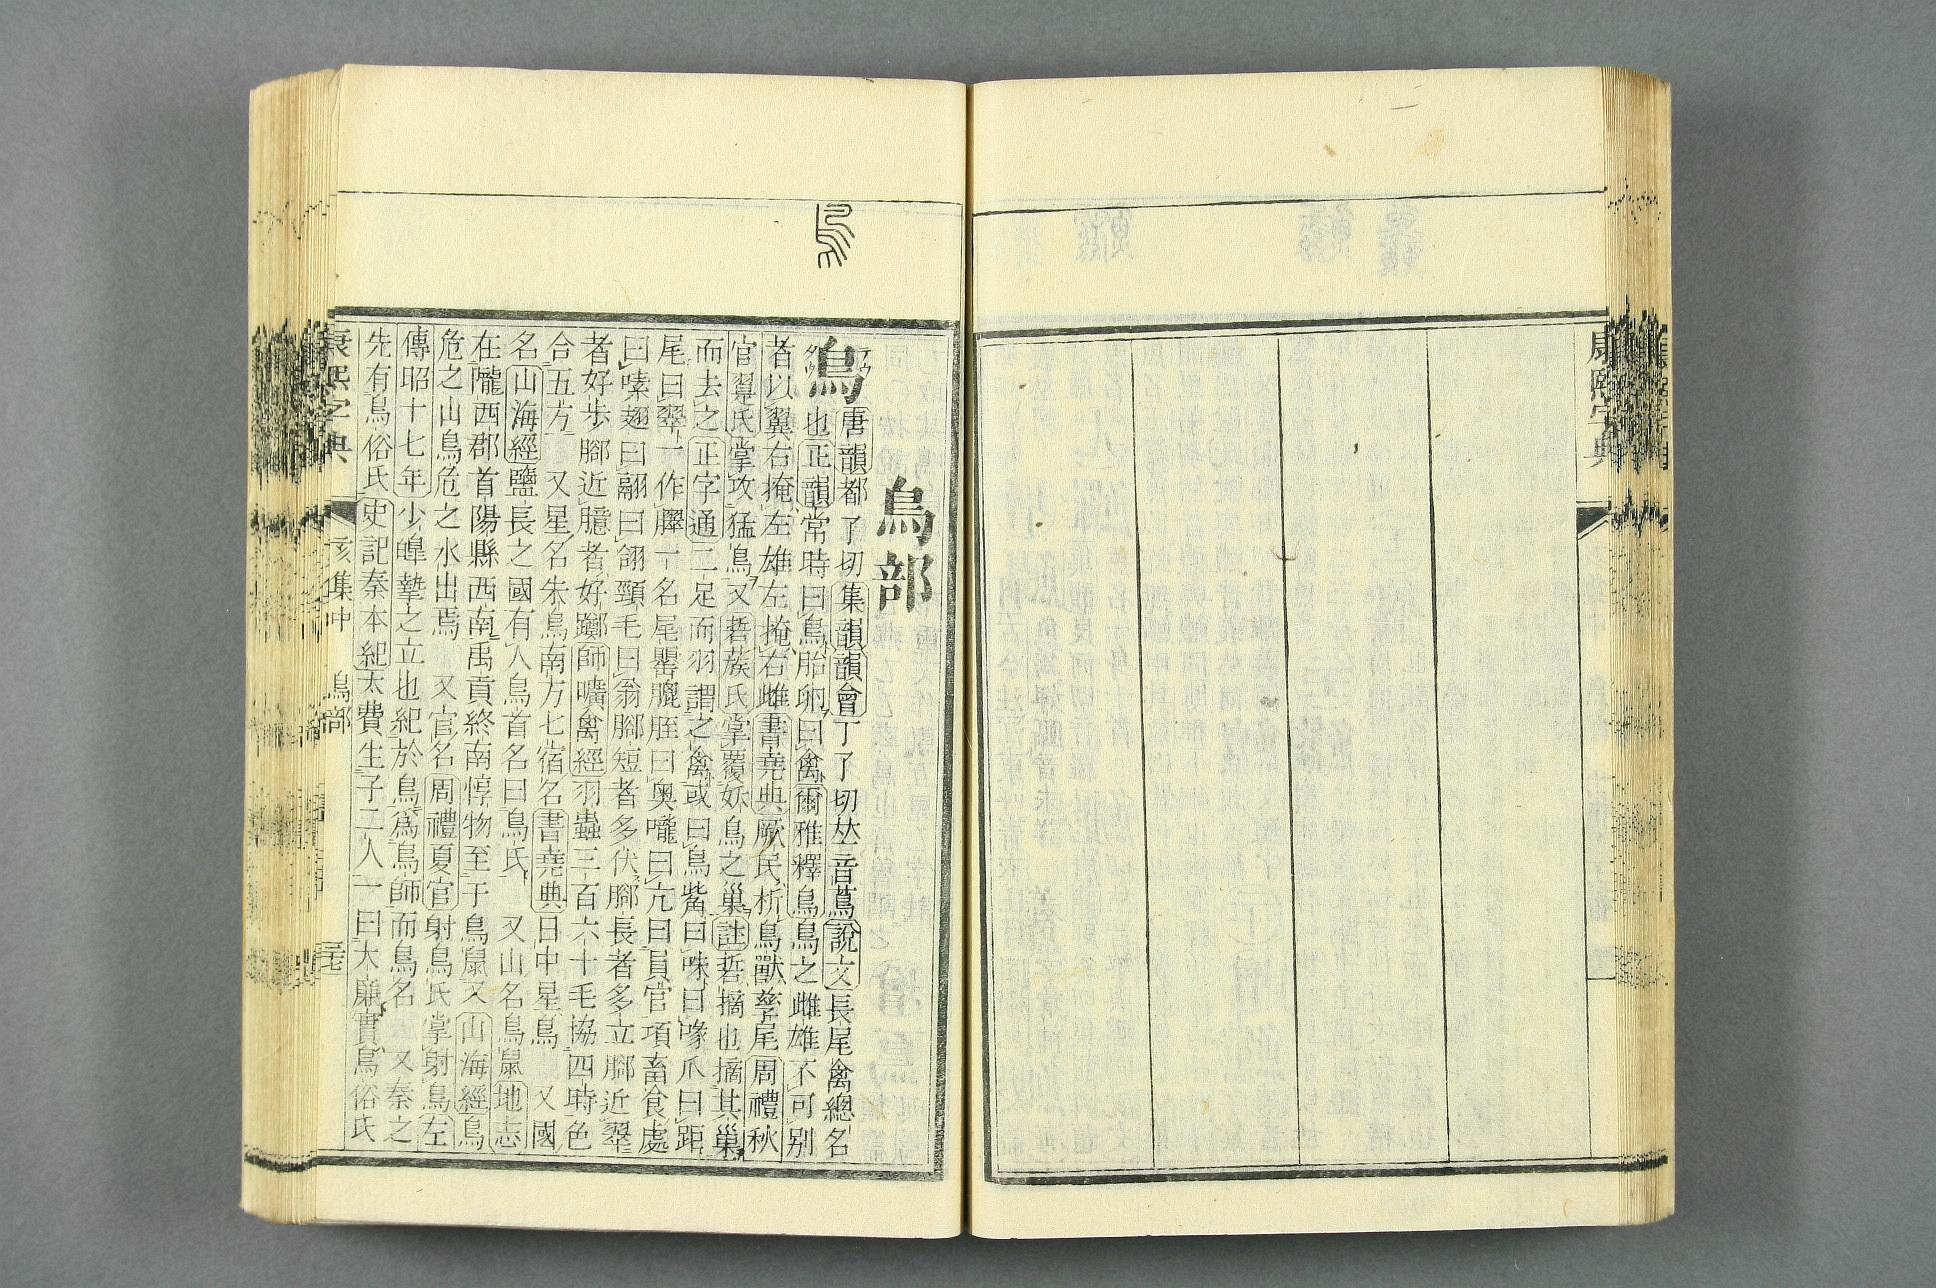 康熙字典
鳥部
鳥
唐韻都了切集韻韻會丁了切𠀤音蔦說文長尾禽總名
也正韻常時曰鳥胎卵曰禽爾雅釋鳥鳥之雌雄不可別
者以翼右掩左雄左掩右雌書堯典厥民析鳥獸孳尾周禮秋
官翨氏掌攻猛鳥又硩蔟氏掌覆妖鳥之巢註硩摘也摘其巢
而去之正字通二足而羽謂之禽或曰鳥觜曰咮曰喙爪曰距
尾曰翠一作臎一名尾罌膍胵曰奧嚨曰亢曰員官項畜食處
曰嗉翅曰翮曰翎頸毛曰翁腳短者多伏腳長者多立腳近翠
者好步腳近臆者好躑師曠禽經羽蟲三百六十毛協四時色
合五方 又星名朱鳥南方七宿名書堯典日中星鳥 又國
名山海經鹽長之國有人鳥首名曰鳥氏 又山名鳥鼠地志
在隴西郡首陽縣西南禹貢終南惇物至于鳥鼠又山海經鳥
危之山鳥危之水出焉 又官名周禮夏官射鳥氏掌射鳥左
傳昭十七年少皥摯之立也紀於鳥爲鳥師而鳥名 又秦之
先有鳥俗氏史記秦本紀太費生子二人一曰大廉實鳥俗氏
康熙字典 亥集中 鳥部